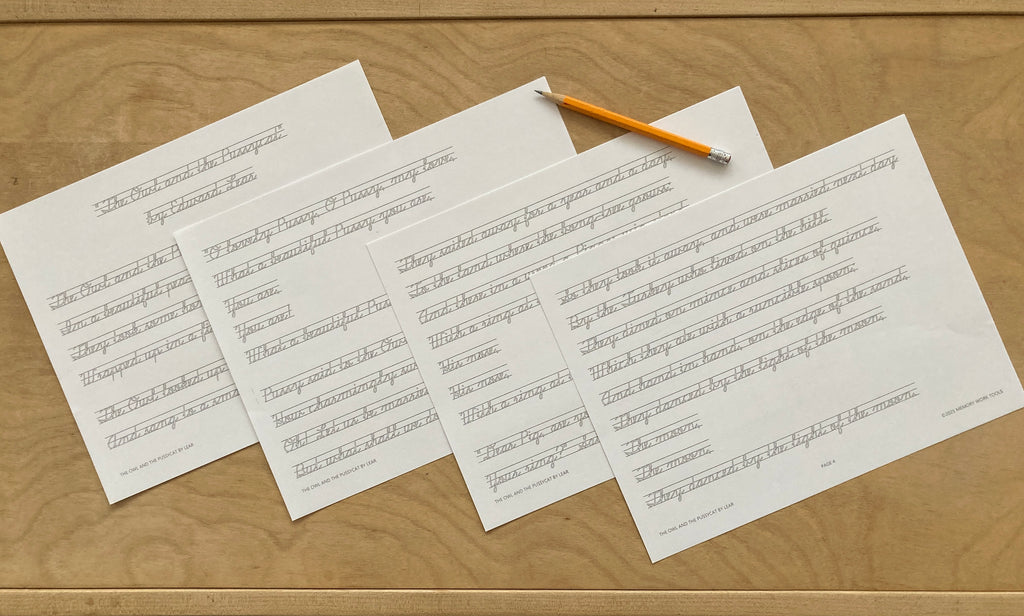 "The Owl and the Pussycat"
by Edward Lear
The Owl and the
In a beautiful
They took some
Wrapped up in a
The Owl looked up
And sang to a
THE OWL AND THE PUSSYCAT BY LEAR
"O lovely Pussy, O Pussy, my love,
What a beautiful Pussy you are,
You are,
You are!
What a beautiful
Pussy said to the
How charmingly
Oh! Let us be
But what shall we
THE OWL AND THE PUSSYCAT BY LEAR
They sailed away, for a year and a day,
To the land where the bong-tree grows;
And there in a wood a
With a ring at
His nose,
His nose,
With a ring at
"Dear Pig, are
Your ring?"
THE OWL AND THE PUSSYCAT BY LEAR
So they took it away, and were married next day
By the Turkey who lived on the hill.
They dined on mince and slices of quince,
Which they ate with a runcible spoon,
And hand in hand, on the edge of the sand,
They danced by the light of the moon,
The moon,
The moon,
They danced by the light of the moon.
THE OWL AND THE PUSSYCAT BY LEAR
PAGE 4
©2023 MEMORY WORK TOOLS